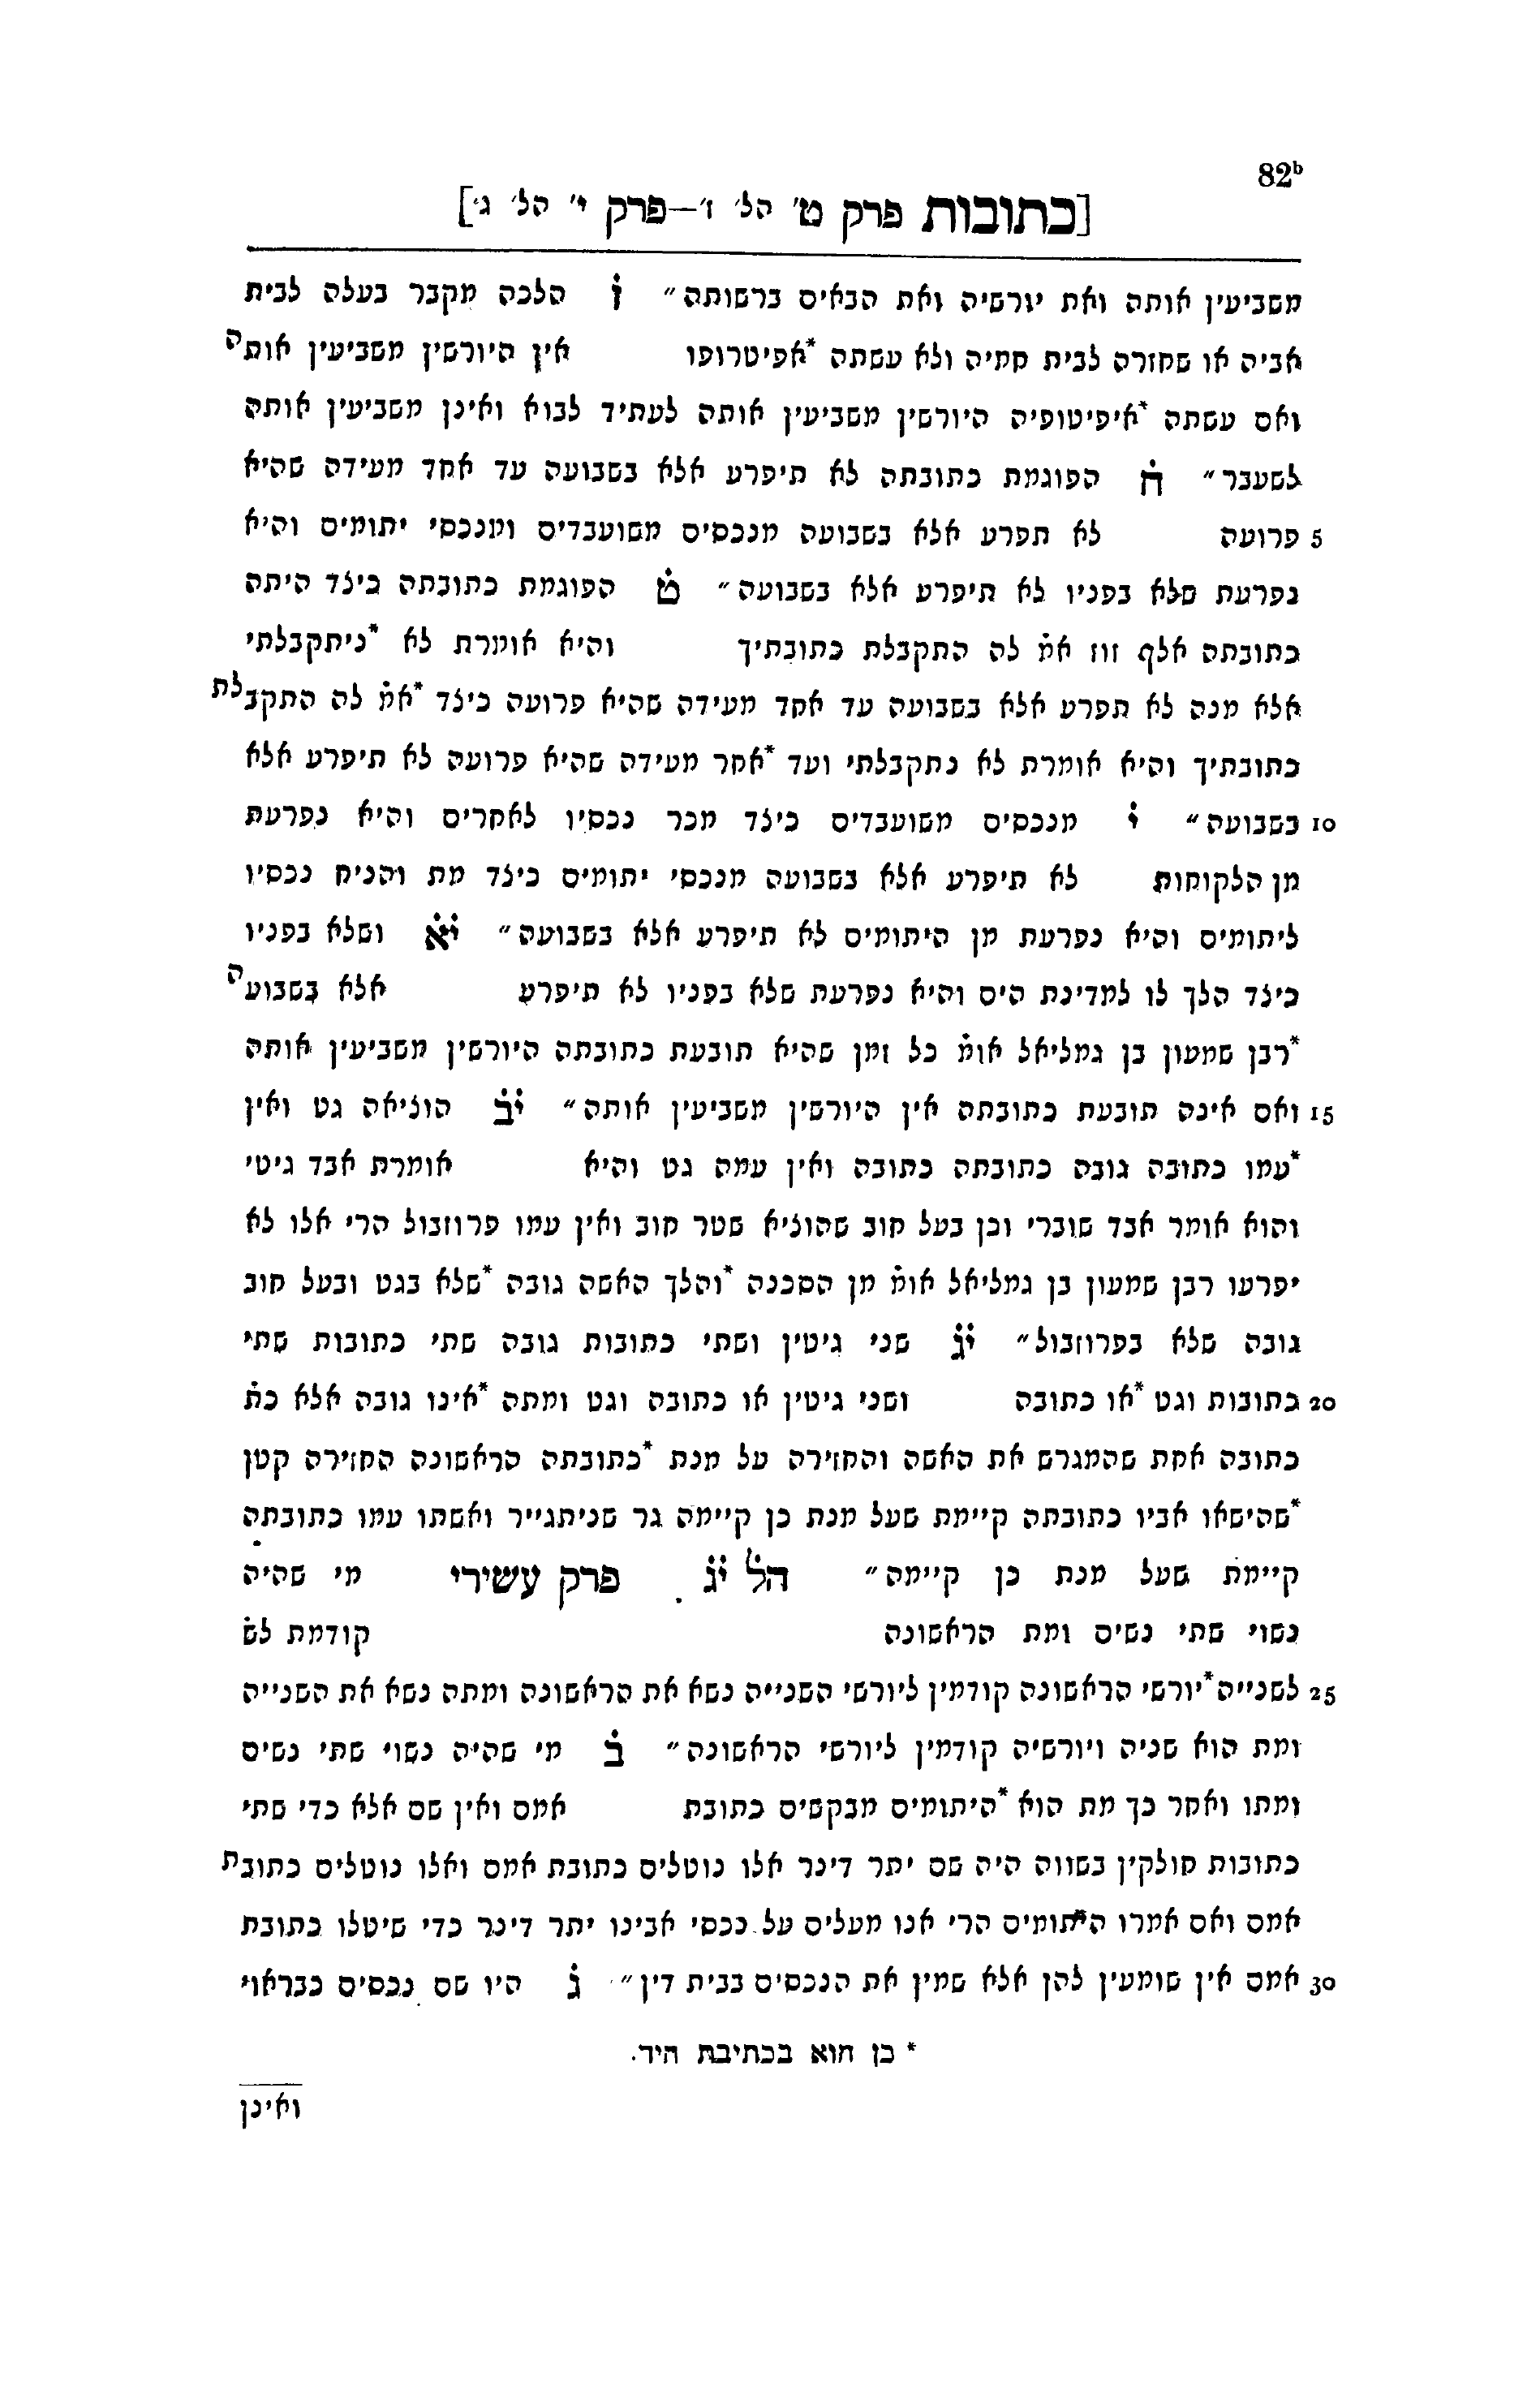 82b
[כתובות פרק ט׳ הל׳ ז׳—פרק י׳ הל׳ ג׳]
משביעין אותה ואת יורשיה ואת הבאים ברשותה״ ז הלכה מקבר בעלה לבית
אביה או שחזרה לבית חמיה ולא עשתה *אפיטרופו אין היורשין משביעין אותה
ואם עשתה *איפיטופיה היורשין משביעין אותה לעתיד לבוא ואינן משביעין אותה
לשעבר״ ח הפוגמת כתובתה לא תיפרע אלא בשבועה עד אחד מעידה שהיא
5 פרועה לא תפרע אלא בשבועה מנכסים משועבדים ומנכסי יתומים והיא
נפרעת שלא בפניו לא תיפרע אלא בשבועה״ ט הפוגמת כתובתה כיצד היתה
כתובתה אלף זוז אמ׳ לה התקבלת כתובתיך והיא אומרת לא *ניתקבלתי
אלא מנה לא תפרע אלא בשבועה עד אחד מעידה שהיא פרועה כיצד *אמ׳ לה התקבלת
כתובתיך והיא אומרת לא נתקבלתי ועד *אחר מעידה שהיא פרועה לא תיפרע אלא
10 בשבועה״ י מנכסים משועבדים כיצד מכר נכסיו לאחרים והיא נפרעת
מן הלקוחות לא תיפרע אלא בשבועה מנכסי יתומים כיצד מת והניח נכסיו
ליתומים והיא נפרעת מן היתומים לא תיפרע אלא בשבועה״ יא ושלא בפניו
כיצד הלך לו למדינת הים והיא נפרעת שלא בפניו לא תיפרע אלא בשבועה
*רבן שמעון בן גמליאל אומ׳ כל זמן שהיא תובעת כתובתה היורשין משביעין אותה
15 ואם אינה תובעת כתובתה אין היורשין משביעין אותה״ יב הוציאה גט ואין
*עמו כתובה גובה כתובתה כתובה ואין עמה גט והיא אומרת אבד גיטי
והוא אומר אבד שוברי וכן בעל חוב שהוציא שטר חוב ואין עמו פרוזבול הרי אלו לא
יפרעו רבן שמעון בן גמליאל אומ׳ מן הסכנה *והלך האשה גובה *שלא בגט ובעל חוב
גובה שלא בפרוזבול״ יג שני גיטין ושתי כתובות גובה שתי כתובות שתי
20 כתובות וגט *או כתובה ושני גיטין או כתובה וגט ומתה *אינו גובה אלא כת׳
כתובה אחת שהמגרש את האשה והחזירה על מנת *כתובתה הראשונה החזירה קטן
*שהישאו אביו כתובתה קיימת שעל מנת כן קיימה גר שניתגייר ואשתו עמו כתובתה
קיימת שעל מנת כן קיימה״ הל׳ יג פרק עשירי מי שהיה
נשוי שתי נשים ומת הראשונה קודמת לש׳
25 לשנייה *יורשי הראשונה קודמין ליורשי השנייה נשא את הראשונה ומתה נשא את השנייה
ומת הוא שניה ויורשיה קודמין ליורשי הראשונה״ ב מי שהיה נשוי שתי נשים
ומתו ואחר כך מת הוא *היתומים מבקשים כתובת אמם ואין שם אלא כדי שתי
כתובות חולקין בשווה היה שם יתר דינר אלו נוטלים כתובת אמם ואלו נוטלים כתובת
אמם ואם אמרו היתומים הרי אנו מעלים על נכסי אבינו יתר דינר כדי שיטלו כתובת
30 אמם אין שומעין להן אלא שמין את הנכסים בבית דין״ ג היו שם נכסים כבראוי
* כן הוא בכתיבת היד.
ואינן